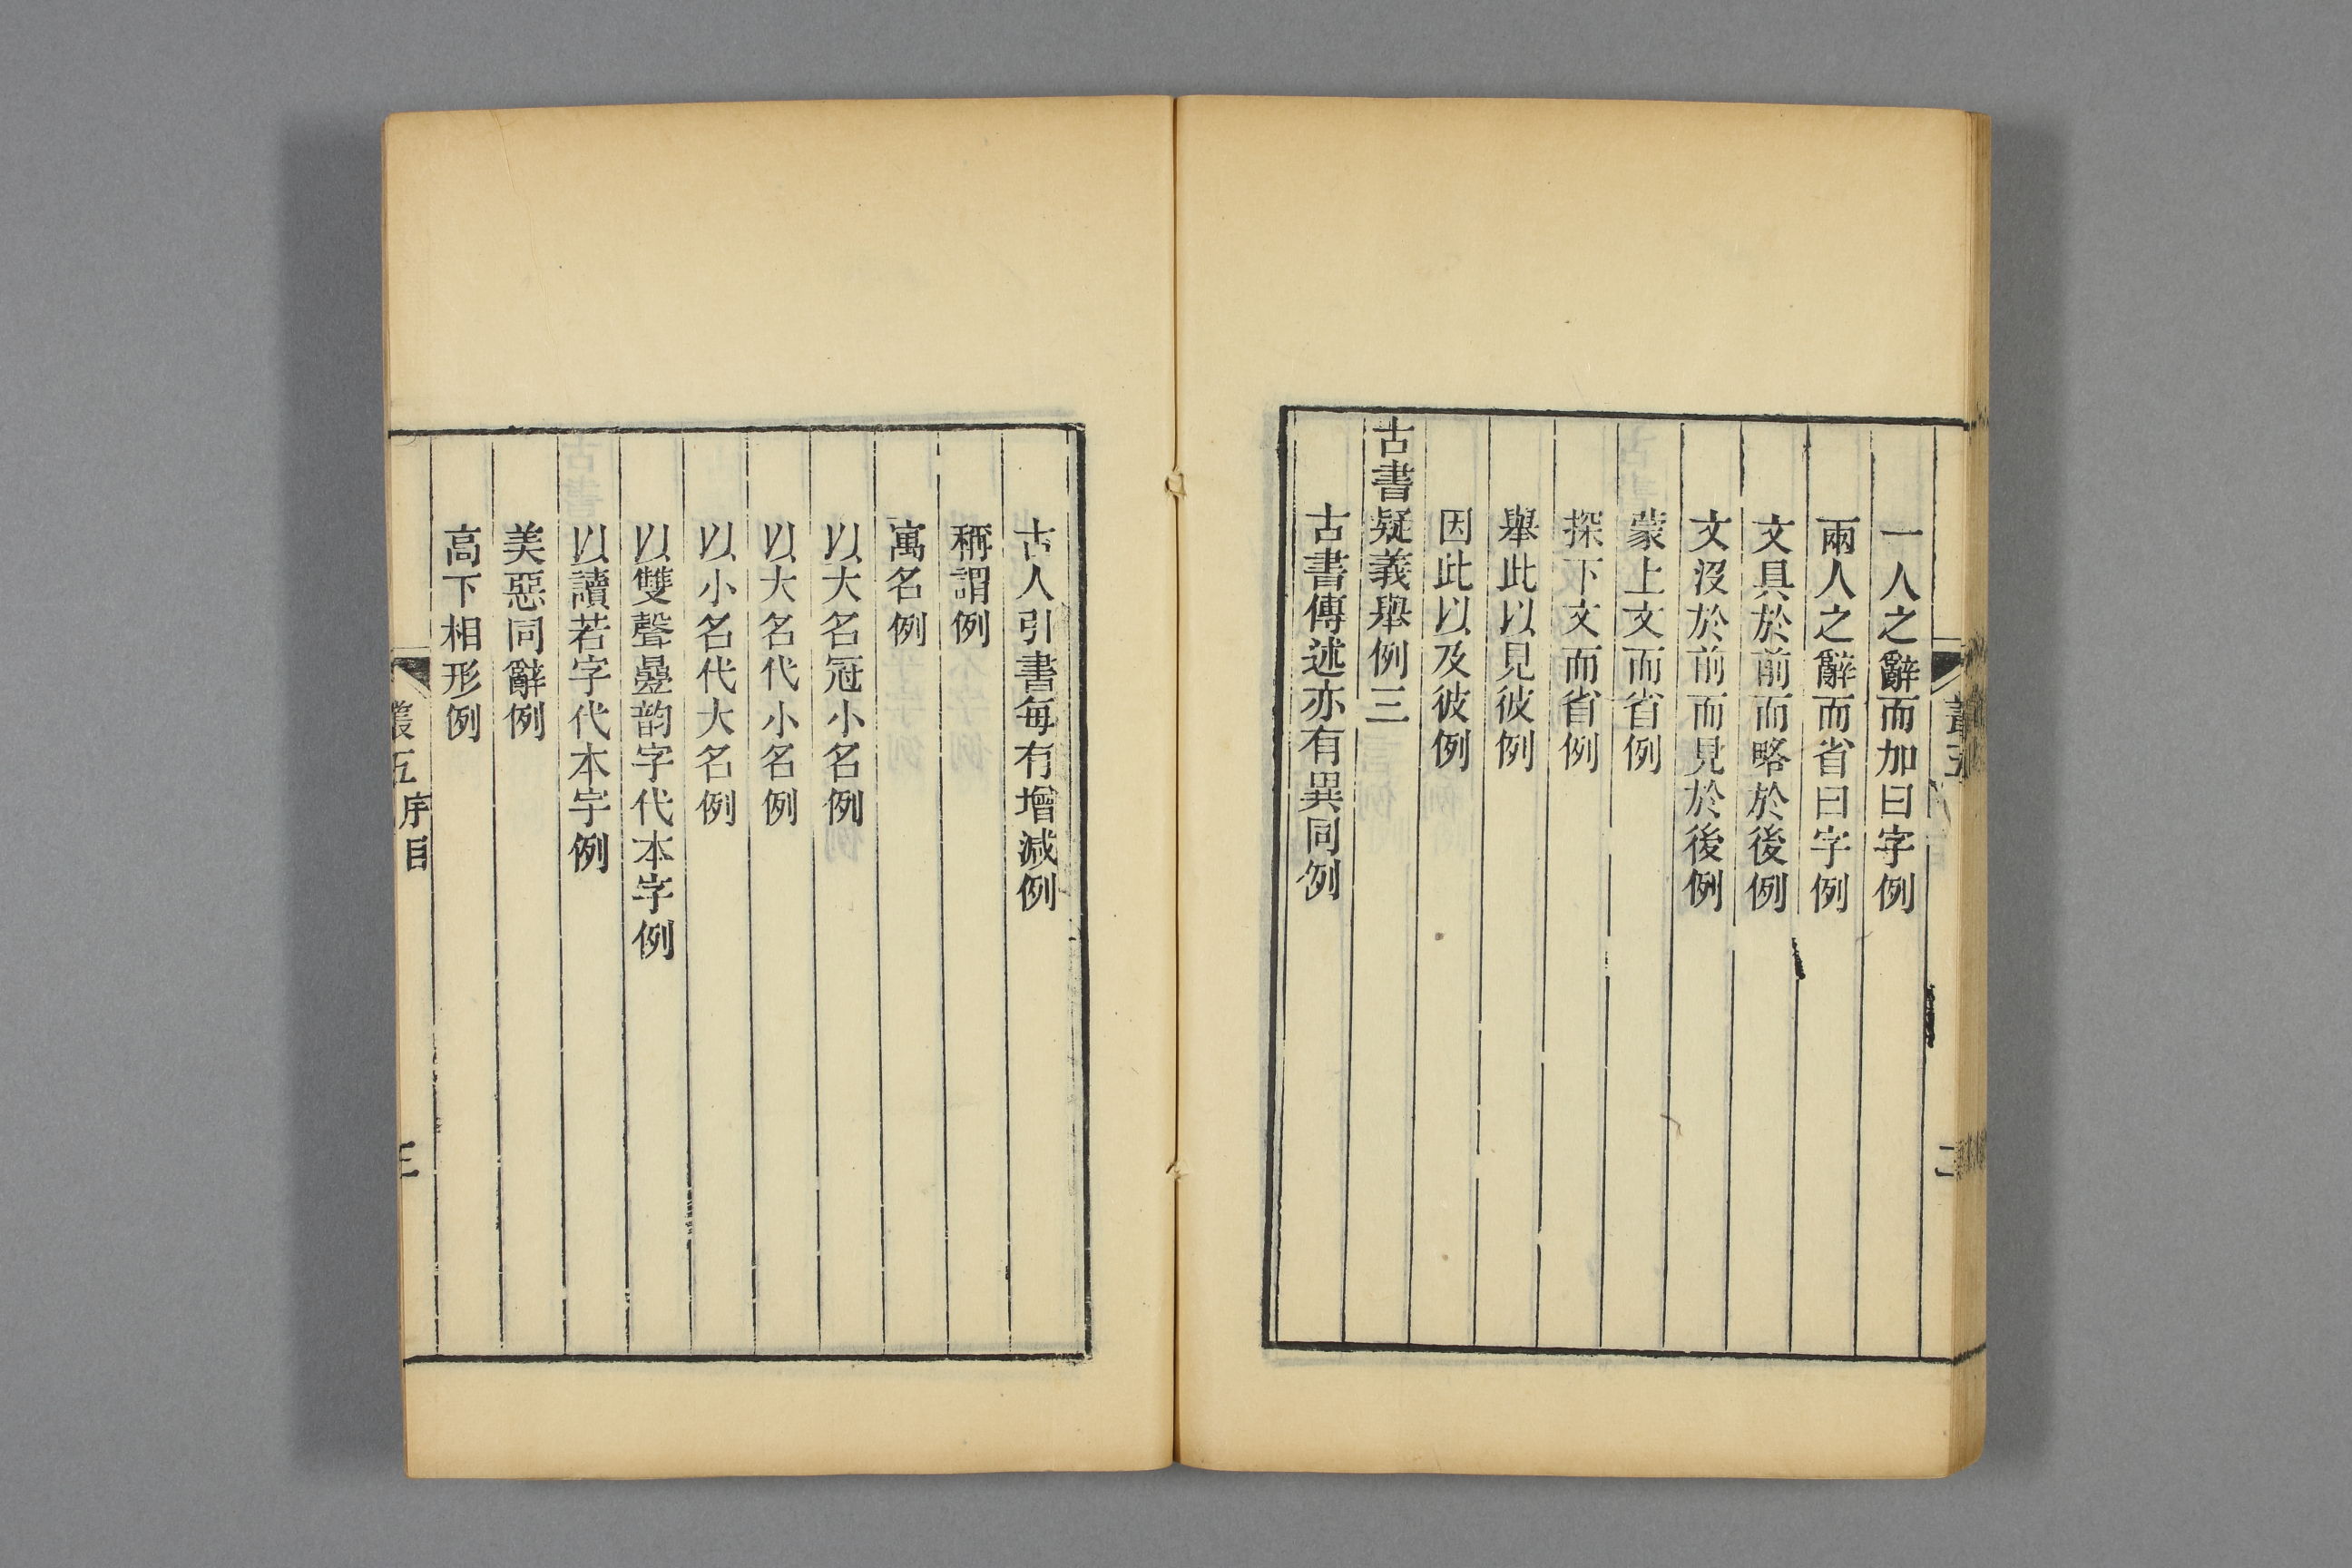 一人之辭而加曰字例
兩人之辭而省曰字例
文具於前而略於後例
文沒於前而見於後例
蒙上文而省例
探下文而省例
舉此以見彼例
因此以及彼例
古書疑義舉例三
古書傳述亦有異同例
古人引書每有增減例
稱謂例
寓名例
以大名冠小名例
以大名代小名例
以小名代大名例
以雙聲曡韵字代本字例
以讀若字代本字例
美惡同辭例
高下相形例
叢五序目
三